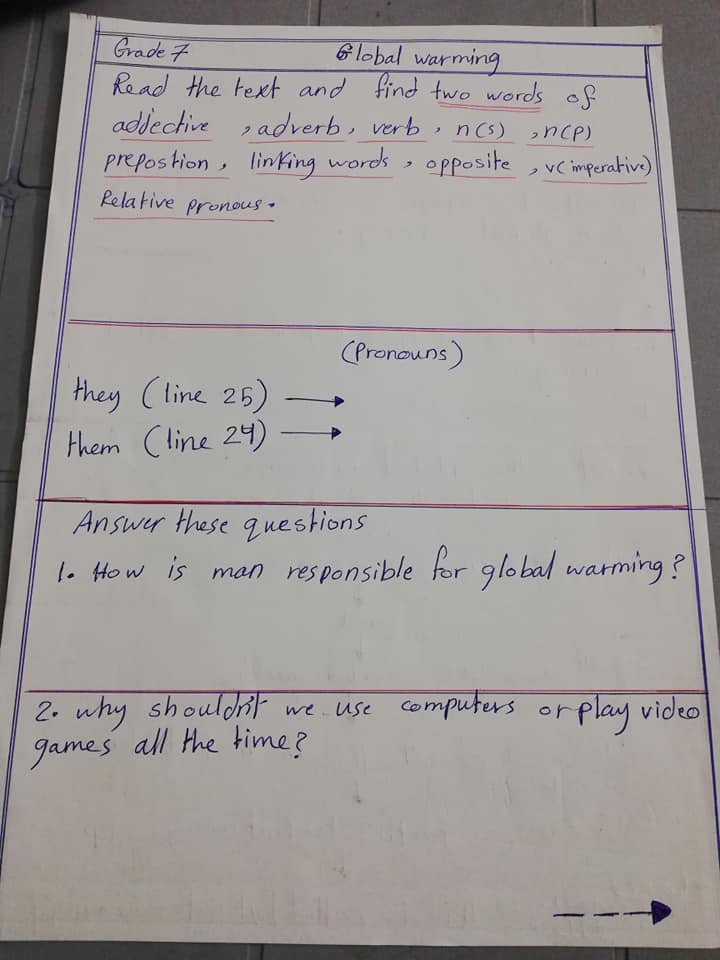 Grade 7 Global warming
Read the text and find two words of
addjective , adverb, verb, n(s) , n(p)
prepostion, linking words, opposite, v(imperative)
Relative pronous.
(Pronouns)
they (line 25) →
them (line 24) →
Answer these questions
1. How is man responsible for global warming?
2. why shouldn't we use computers or play video
games all the time?